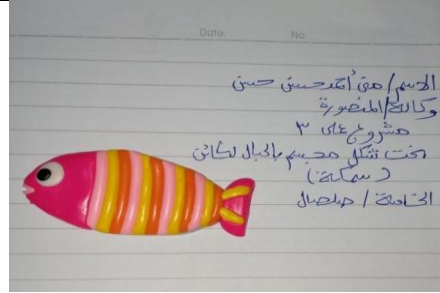 Date. No.
الاسم / منى أحمد حسن حسن
وكالة / المنصورة
مشروع على ٣
نحت شكل مجسم بالحبال لكائن
(سمكة)
الخامة / صلصال